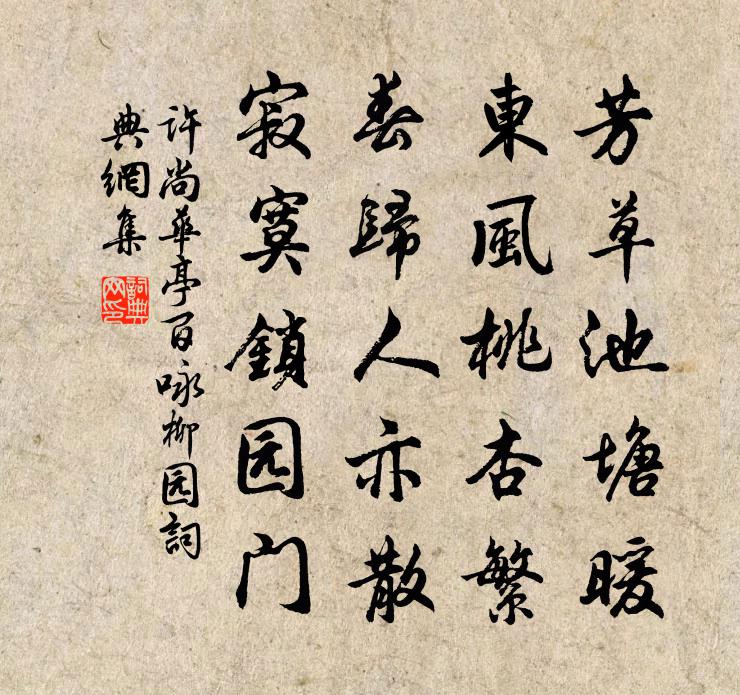 芳草池塘暖
東風桃杏繁
春歸人亦散
寂寞鎖园门
许尚華亭百咏柳园詞
典網集
詞典
网印